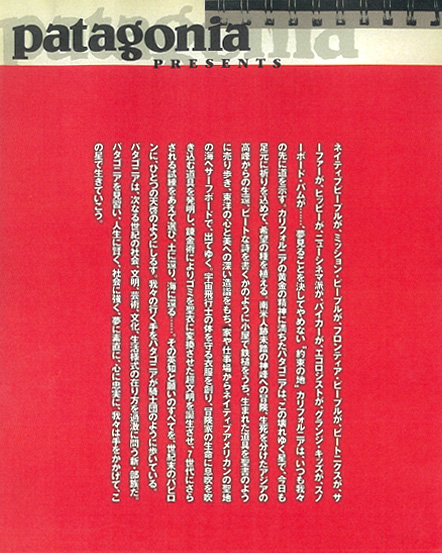 patagonia
PRESENTS
ネイティブピープルが、ミッション・ピープルが、フロンティア・ピープルが、ビートニクスが、サ
ーファーが、ヒッピーが、ニューシネマ派が、バイカーが、エコロジストが、グランジ・キッズが、スノ
ーボード・バムが……夢見ることを決してやめない“約束の地”カリフォルニアは、いつも我々
の先に道を示す。カリフォルニアの黄金の精神に満ちたパタゴニアは、この壊れゆく星で、今日も
足元に祈りを込めて、希望の種を植える。南米人跡未踏の神域への冒険、生死を分けたアジアの
高峰からの生還。ビートな詩を書くかのように小屋で鉄槌をうち、生まれた道具を聖書のよう
に売り歩き、東洋の心と美への深い造詣をもち、家や仕事場からネイティブアメリカンの聖地
の海へサーフボードで、出てゆく。宇宙飛行士の体を守る衣服を創り、冒険家の生命に息吹を吹
き込む道具を発明し、錬金術によりゴミを聖衣に変換させた超文明を誕生させ、7世代にさら
される試練をあえて選び、土に還り、海に還る……。その英知と願いのすべてを、世紀末のバビロ
ンに、ひとつの天啓のようにしるす。我々の行く手をパタゴニアが騎士団のように歩いている。
パタゴニアは、次なる世紀の社会、文明、芸術、文化、生活様式の在り方を過激に問う新・部族だ。
パタゴニアを見習い、人生に賢く、社会に強く、夢に素直に、心に忠実に、我々は手をかかげて、こ
の星で生きていこう。